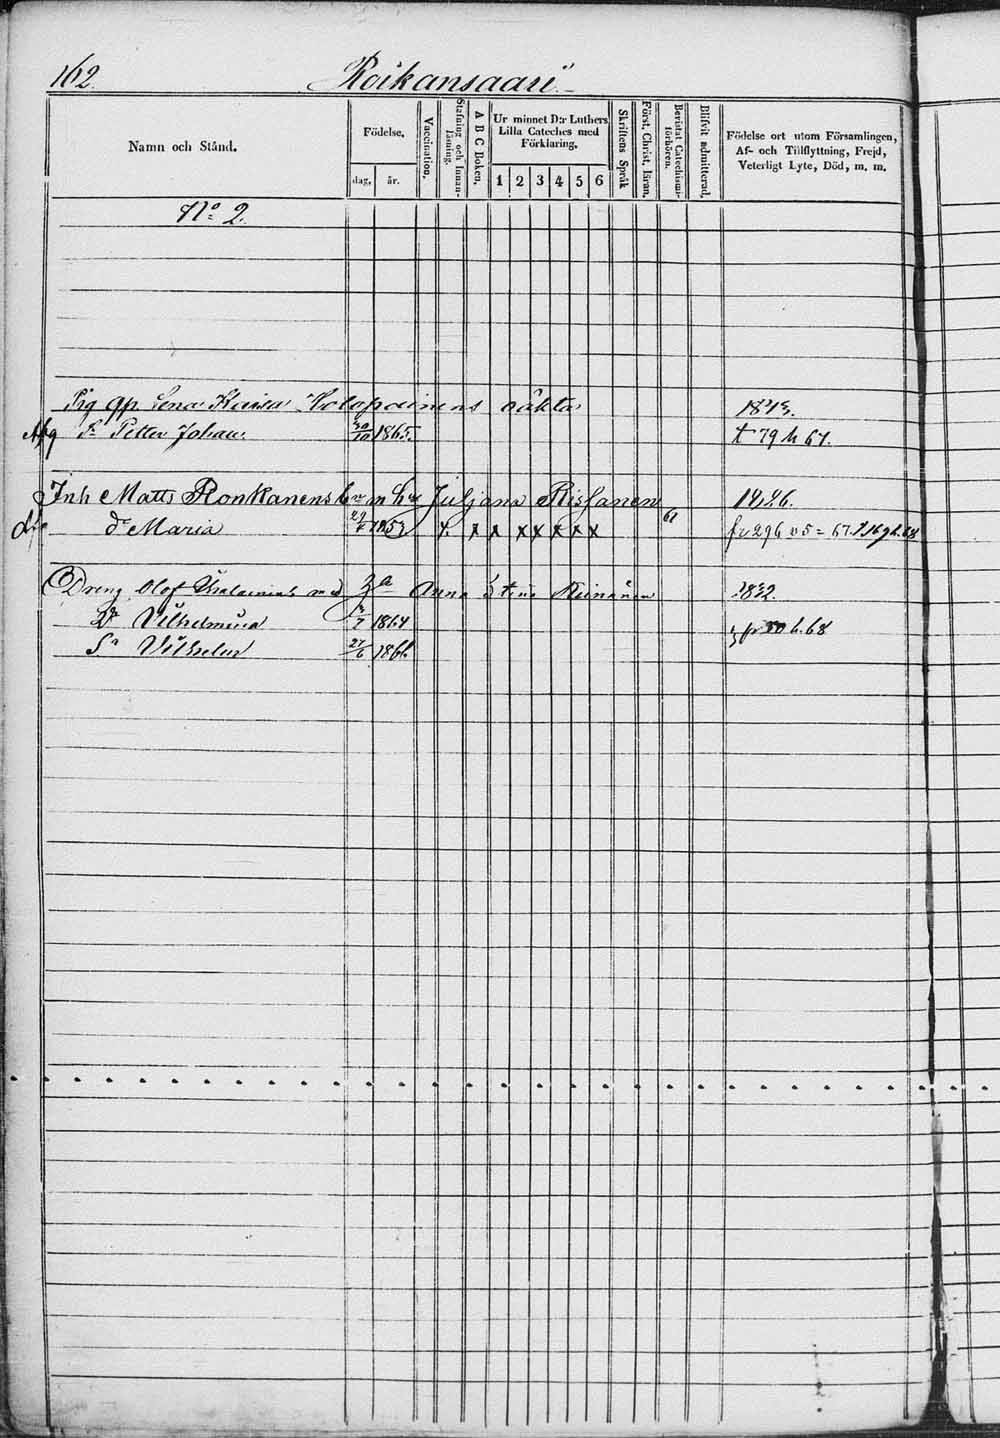 162.
Roikansaari
Namn och Stånd.
Födelse.
dag. år.
Vaccination.
Stafning och Innanläsning.
A B C Boken.
Ur minnet D:r Luthers Lilla Cateches med Förklaring.
1 2 3 4 5 6
Skriftens Språk
Först. Christ. läran.
Bevistat Catechismi-förhören.
Blifvit admitterad.
Födelse ort utom Församlingen,
Af- och Tillflyttning, Frejd,
Veterligt Lyte, Död, m. m.
No 2.
Pig Lena Kaisa oäkta
Sn Petter Johan. 30/10 1865. † 79 h 67.
Inh Matts Ronkanens m Juljana 1826.
dr Maria x x x x x x x x 67 fr 296 v 5 = 67.
Dreng Olof med Anna Stina 1832.
Dr Vilhelmina 1864 68
Sn Vilhelm 27/6 1866.